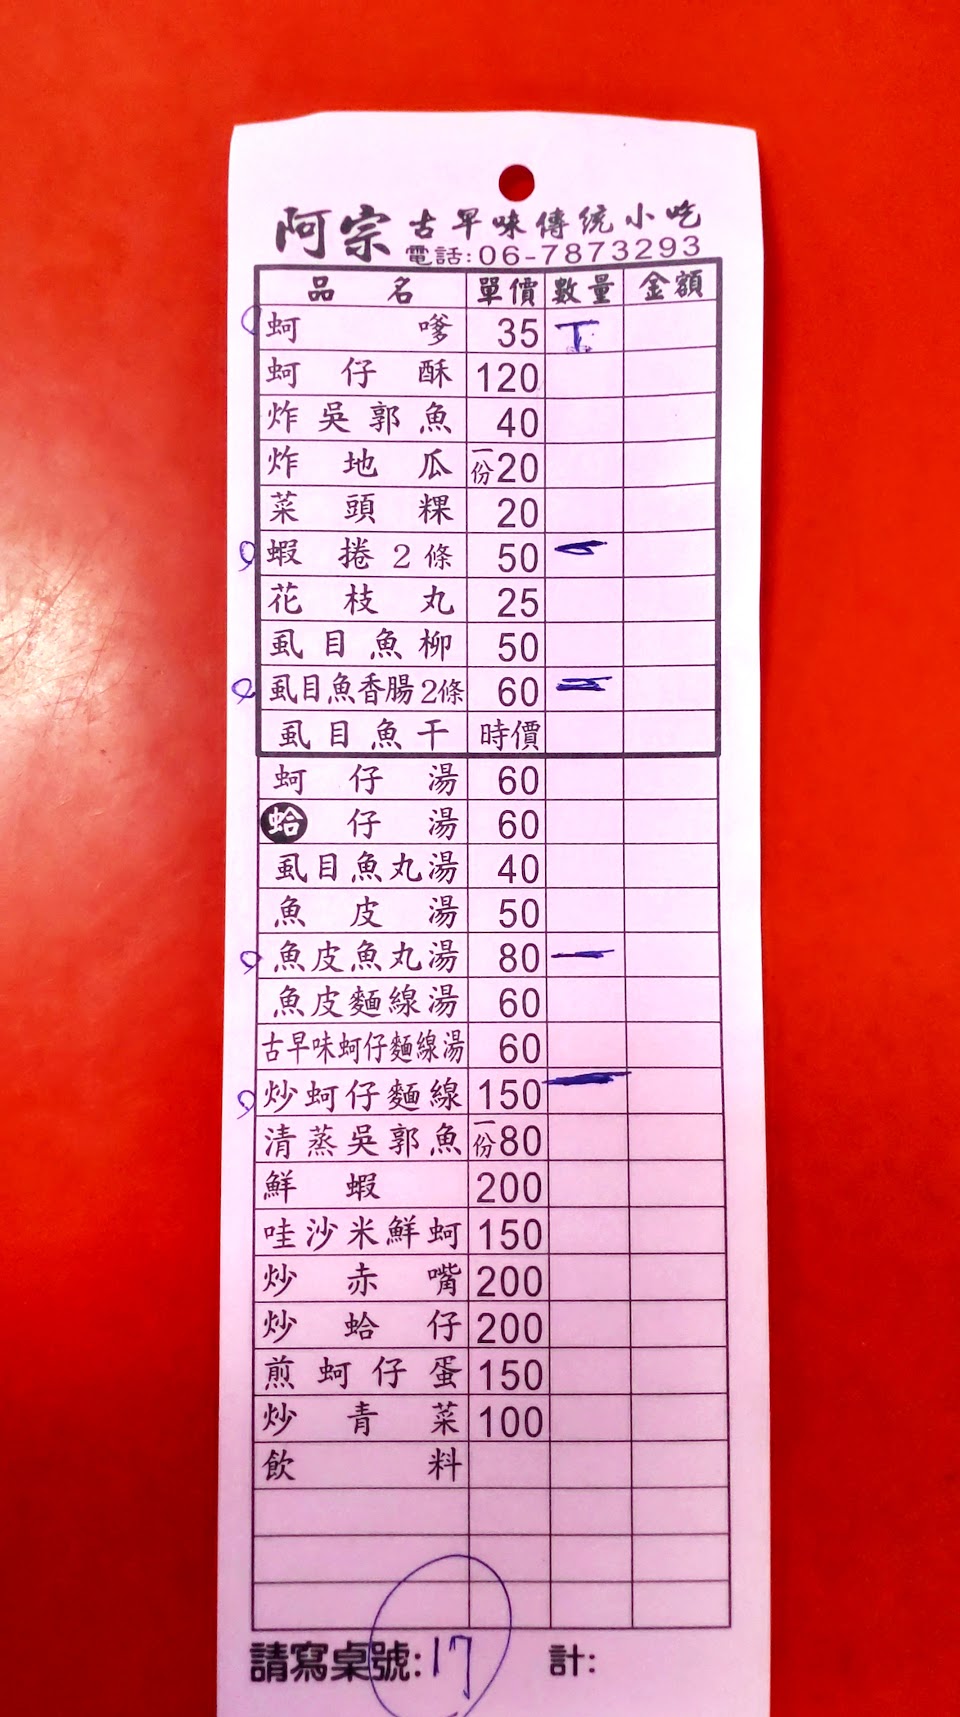 阿宗 古早味傳統小吃
電話:06-7873293
品名 單價 數量 金額
蚵嗲 35 T
蚵仔酥 120
炸吳郭魚 40
炸地瓜 一份20
菜頭粿 20
蝦捲2條 50 一
花枝丸 25
虱目魚柳 50
虱目魚香腸2條 60 一
虱目魚干 時價
蚵仔湯 60
蛤仔湯 60
虱目魚丸湯 40
魚皮湯 50
魚皮魚丸湯 80 一
魚皮麵線湯 60
古早味蚵仔麵線湯 60
炒蚵仔麵線 150 一
清蒸吳郭魚 一份80
鮮蝦 200
哇沙米鮮蚵 150
炒赤嘴 200
炒蛤仔 200
煎蚵仔蛋 150
炒青菜 100
飲料
請寫桌號:17 計: